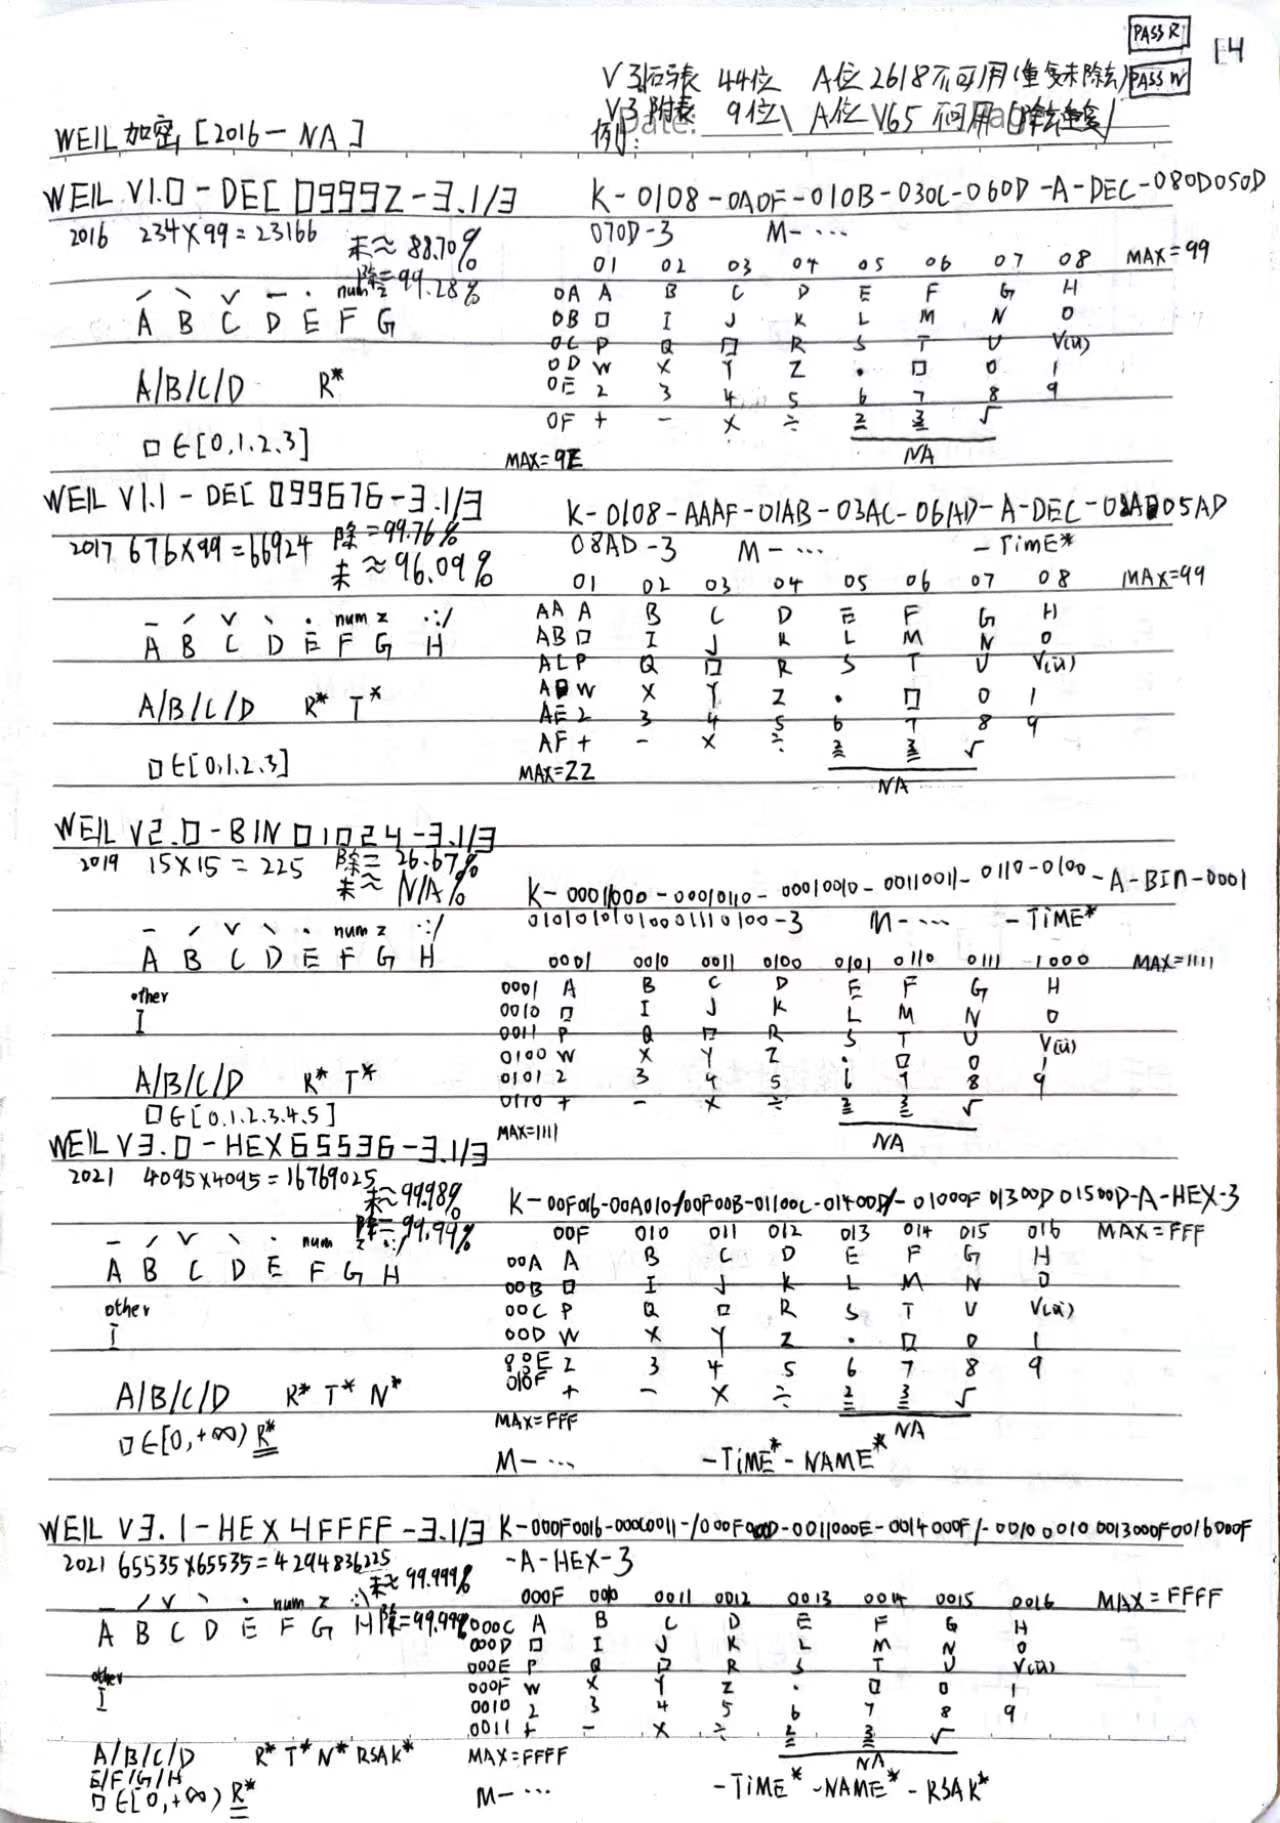 PASS R
14
V3后缀表 44位 A位2618不可用(重复未除去)
PASS W
V3附表 9位\ A位V65不可用[除去重复]
WEIL加密[2016-NA]
例:
WEIL V1.0-DEC 09992-3.1/3 K-0108-0A0F-010B-030C-060D-A-DEC-080D050D
2016 234×99=23166 未≈88.70% 070D-3 M-···
除=99.28% 01 02 03 04 05 06 07 08 MAX=99
ˊ ˋ ˇ ˉ · num z 0A A B C D E F G H
A B C D E F G 0B □ I J K L M N O
0C P Q □ R S T U V(ü)
0D W X Y Z · □ 0 1
A/B/C/D R* 0E 2 3 4 5 6 7 8 9
0F + - × ÷ 2 3 √
□∈[0,1,2,3] NA
MAX=9E
WEIL V1.1-DEC 099676-3.1/3 K-0108-AAAF-01AB-03AC-06AD-A-DEC-05AD
2017 676×99=66924 除=99.76% 08AD-3 M-··· -TiME*
未≈96.09% 01 02 03 04 05 06 07 08 MAX=99
ˉ ˊ ˇ ˋ · num z ·:/ AA A B C D E F G H
A B C D E F G H AB □ I J K L M N O
AC P Q □ R S T U V(ü)
A/B/C/D R* T* AD W X Y Z · □ 0 1
AE 2 3 4 5 6 7 8 9
AF + - × ÷ 2 3 √
□∈[0,1,2,3] MAX=ZZ NA
WEIL V2.0-BIN 01024-3.1/3
2019 15×15=225 除=26.67%
未≈N/A% K-00011000-00010110-00010010-00110011-0110-0100-A-BIN-0001
010101010100011110100-3 M-··· -TiME*
ˉ ˊ ˇ ˋ · num z ·:/
A B C D E F G H 0001 0010 0011 0100 0101 0110 0111 1000 MAX=1111
other 0001 A B C D E F G H
I 0010 □ I J K L M N O
0011 P Q □ R S T U V(ü)
0100 W X Y Z · □ 0 1
A/B/C/D R* T* 0101 2 3 4 5 6 7 8 9
□∈[0,1,2,3,4,5] 0110 + - × ÷ 2 3 √
MAX=1111 NA
WEIL V3.0-HEX 65536-3.1/3
2021 4095×4095=16769025
未≈99.98% K-00F016-00A010-/00F00B-01100C-01400D/-01000F01300D01500D-A-HEX-3
除=99.99% 00F 010 011 012 013 014 015 016 MAX=FFF
ˉ ˊ ˇ ˋ · num z ·:/ 00A A B C D E F G H
A B C D E F G H 00B □ I J K L M N O
other 00C P Q □ R S T U V(ü)
I 00D W X Y Z · □ 0 1
00E 2 3 4 5 6 7 8 9
A/B/C/D R* T* N* 00F + - × ÷ 2 3 √
MAX=FFF NA
□∈[0,+∞) R* M-··· -TiME*-NAME*
WEIL V3.1-HEX 4FFFF-3.1/3 K-000F0016-000C0011-/000F000D-0011000E-0014000F/-001000100013000F0016000F
2021 65535×65535=4294836225 -A-HEX-3
未≈99.999% 000F 0010 0011 0012 0013 0014 0015 0016 MAX=FFFF
ˉ ˊ ˇ ˋ · num z ·:\
A B C D E F G H 除=99.999% 000C A B C D E F G H
000D □ I J K L M N O
other 000E P Q □ R S T U V(ü)
I 000F W X Y Z · □ 0 1
0010 2 3 4 5 6 7 8 9
0011 + - × ÷ 2 3 √
A/B/C/D R* T* N* RSAK* MAX=FFFF NA
E/F/G/H
□∈[0,+∞) R* M-··· -TiME*-NAME*-RSAK*